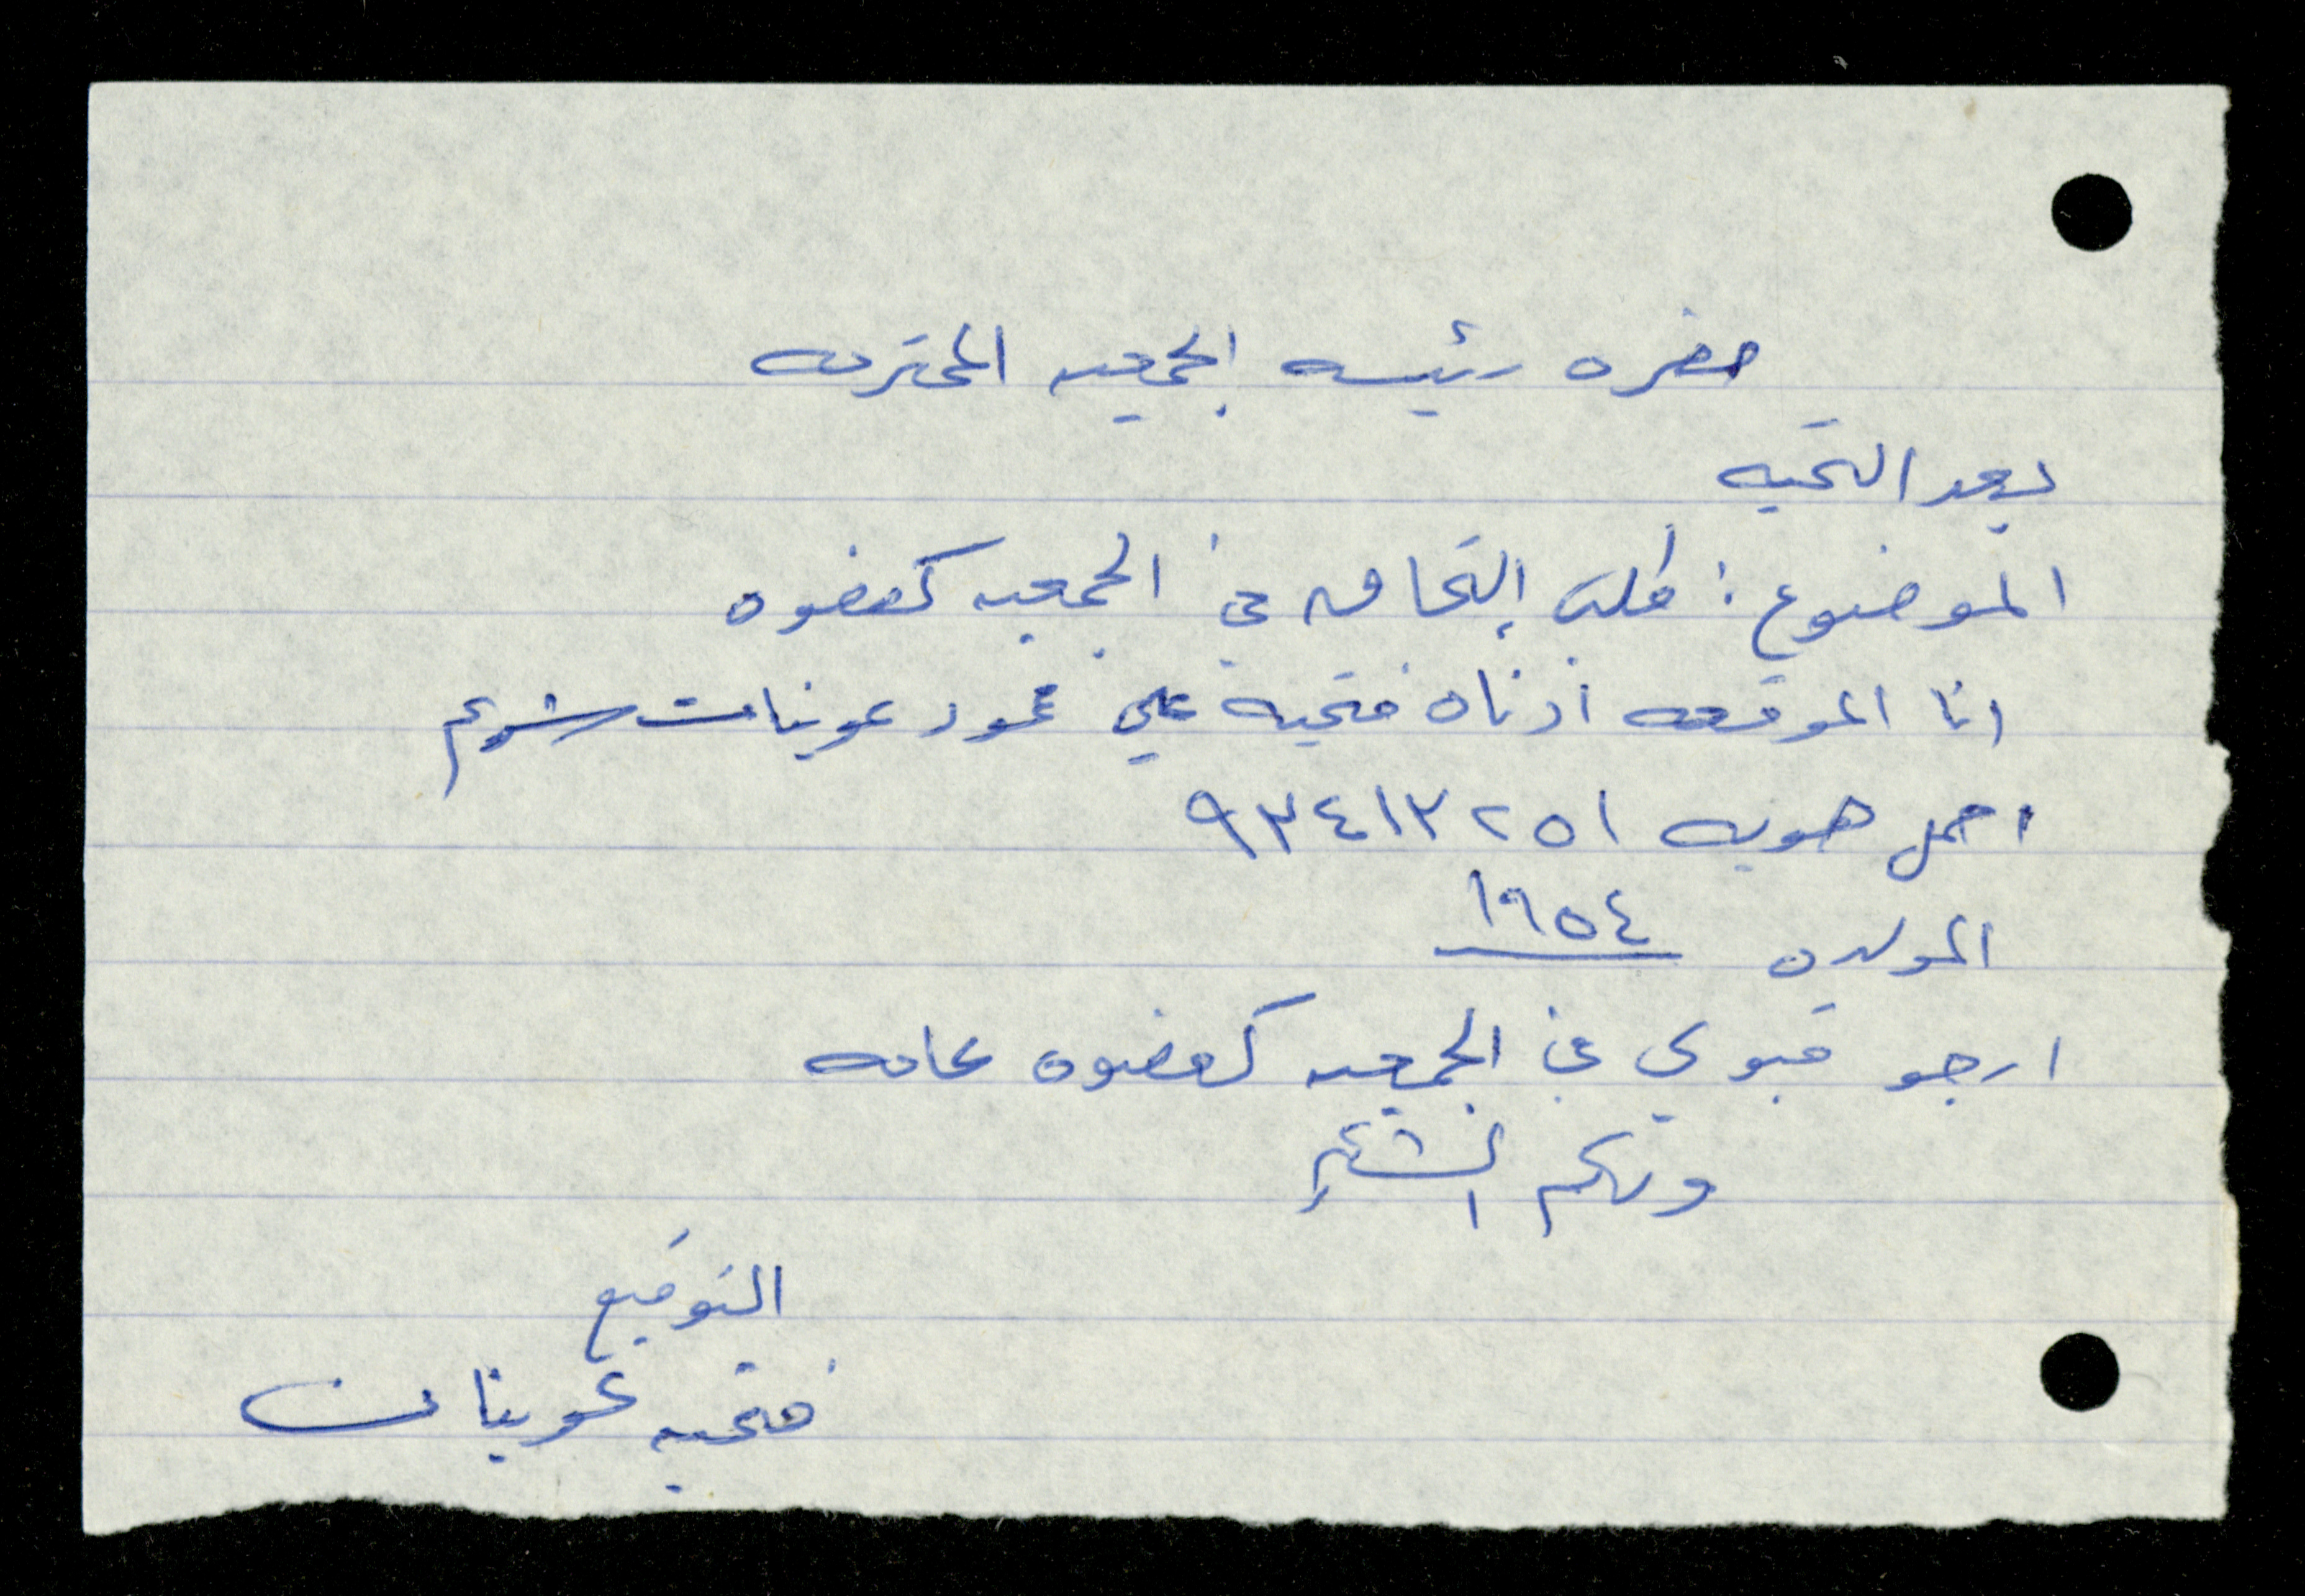 حضره رئيسه الجمعيه المحترمه
بعد التحيه
الموضوع : طلب إلتحاق في الجمعيه كعضوه
انا الموقعه أدناه فتحيه علي محمود عوينات
احمل هويه ٩٣٤١٣٢٥١
المولده ١٩٥٤
ارجو قبولي في الجمعيه كعضوه عامه
ولكم الشكر
التوقيع
فتحيه عوينات